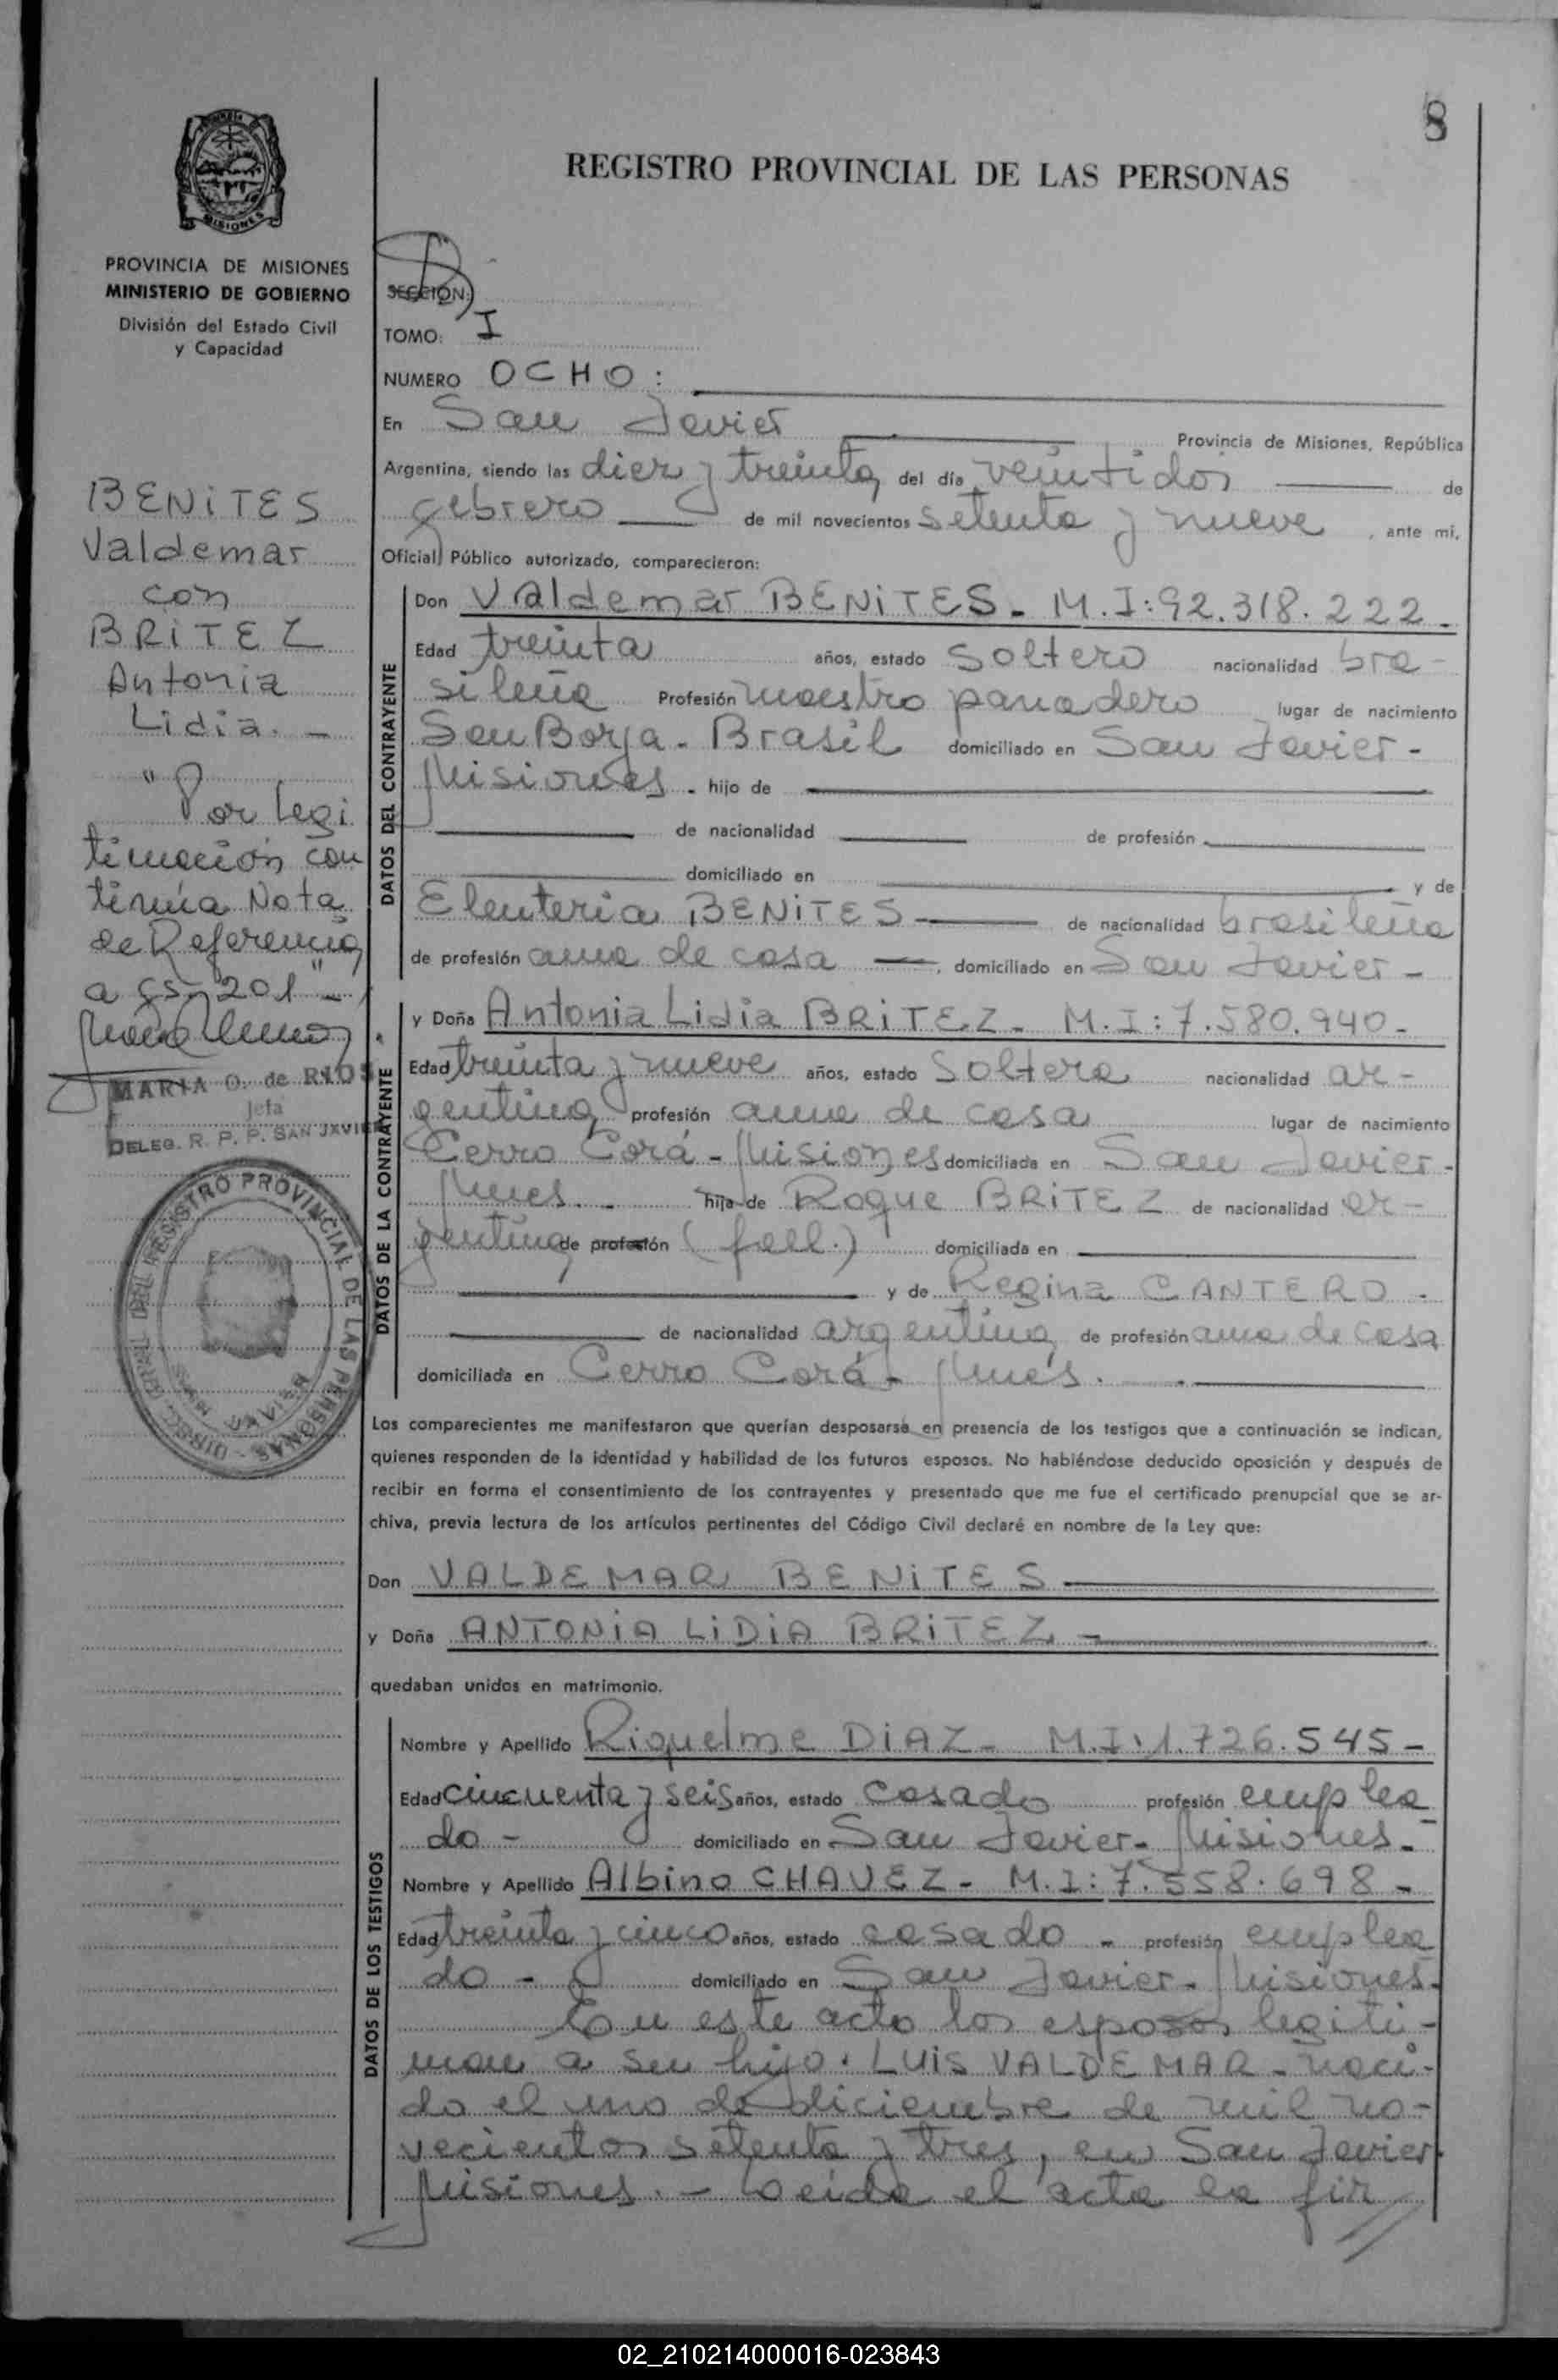 8
REGISTRO PROVINCIAL DE LAS PERSONAS
MISIONES
PROVINCIA DE MISIONES
MINISTERIO DE GOBIERNO
División del Estado Civil
y Capacidad
BENITES
Valdemar
con
BRITEZ
Antonia
Lidia. -
"Por legi
timación con
tinúa Nota
de Referencia
a fs. 201" -
MARIA O. de RIOS
Jefa
DELEG. R. P. P. SAN JAVIER
REGISTRO PROVINCIAL DE LAS PERSONAS
SECCION:
TOMO: I
NUMERO OCHO:
En San Javier Provincia de Misiones, República
Argentina, siendo las diez y treinta del día veintidos de
febrero de mil novecientos setenta y nueve, ante mi,
Oficial Público autorizado, comparecieron:
DATOS DEL CONTRAYENTE
Don Valdemar BENITES. M.I: 92.318.222.
Edad treinta años, estado soltero nacionalidad bra-
sileña Profesión maestro panadero lugar de nacimiento
San Borja - Brasil domiciliado en San Javier -
Misiones. hijo de
de nacionalidad de profesión
domiciliado en y de
Eleuteria BENITES de nacionalidad brasileña
de profesión ama de casa, domiciliado en San Javier -
DATOS DE LA CONTRAYENTE
y Doña Antonia Lidia BRITEZ. M.I: 7.580.940-
Edad treinta y nueve años, estado soltera nacionalidad ar-
gentina profesión ama de casa lugar de nacimiento
Cerro Corá - Misiones domiciliada en San Javier -
Mnes. - hija de Roque BRITEZ de nacionalidad ar-
gentina de profesión (fall.) domiciliada en
y de Regina CANTERO -
de nacionalidad argentina de profesión ama de casa
domiciliada en Cerro Corá - Mnes.
Los comparecientes me manifestaron que querían desposarse en presencia de los testigos que a continuación se indican,
quienes responden de la identidad y habilidad de los futuros esposos. No habiéndose deducido oposición y después de
recibir en forma el consentimiento de los contrayentes y presentado que me fue el certificado prenupcial que se ar-
chiva, previa lectura de los artículos pertinentes del Código Civil declaré en nombre de la Ley que:
Don VALDEMAR BENITES
y Doña ANTONIA LIDIA BRITEZ -
quedaban unidos en matrimonio.
DATOS DE LOS TESTIGOS
Nombre y Apellido Riquelme DIAZ - M.I: 1.726.545-
Edad cincuenta y seis años, estado casado profesión emplea
do - domiciliado en San Javier - Misiones.-
Nombre y Apellido Albino CHAVEZ - M.I: 7.558.698 -
Edad treinta y cinco años, estado casado - profesión emplea
do - domiciliado en San Javier - Misiones.
En este acto los esposos legiti-
man a su hijo: LUIS VALDEMAR - naci-
do el uno de diciembre de mil no-
vecientos setenta y tres, en San Javier
Misiones. - Leida el acta la fir
//
02_210214000016-023843